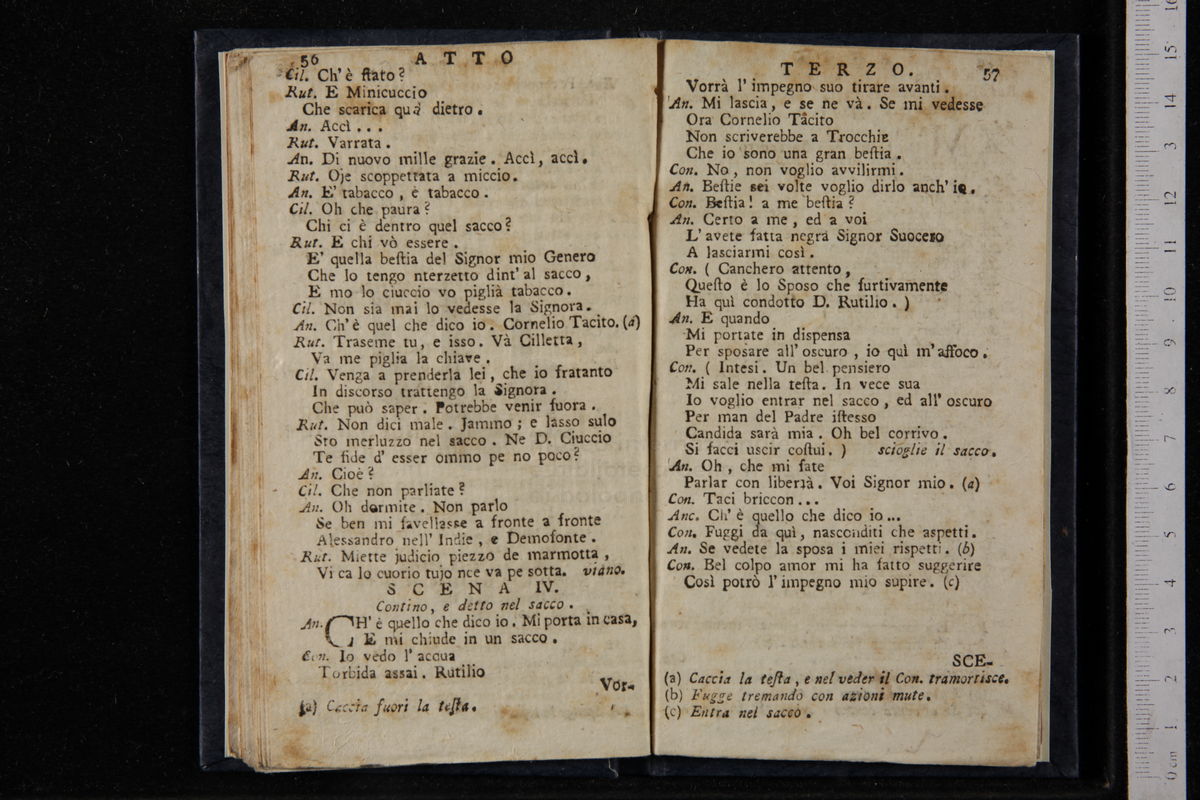 56 ATTO
Cil. Ch' è ſtato?
Rut. E Minicuccio
Che scarica quà dietro.
An. Accì...
Rut. Varrata.
An. Di nuovo mille grazie. Accì, accì.
Rut. Oje scoppettata a miccio.
An. E' tabacco, è tabacco.
Cil. Oh che paura?
Chi ci è dentro quel sacco?
Rut. E chi vò essere.
E' quella beſtia del Signor mio Genero
Che lo tengo nterzetto dint' al sacco,
E mo lo ciuccio vo piglià tabacco.
Cil. Non sia mai lo vedesse la Signora.
An. Ch' è quel che dico io. Cornelio Tacito. (a)
Rut. Traseme tu, e isso. Và Cilletta,
Va me piglia la chiave.
Cil. Venga a prenderla lei, che io fratanto
In discorso trattengo la Signora.
Che può saper. Potrebbe venir fuora.
Rut. Non dici male. Jammo; e lasso sulo
Sto merluzzo nel sacco. Ne D. Ciuccio
Te fide d' esser ommo pe no poco?
An. Cioè?
Cil. Che non parliate?
An. Oh dormite. Non parlo
Se ben mi favellasse a fronte a fronte
Alessandro nell' Indie, e Demofonte.
Rut. Miette judicio piezzo de marmotta,
Vi ca lo cuorio tujo nce va pe sotta. viano.
SCENA IV.
Contino, e detto nel sacco.
An. CH' è quello che dico io. Mi porta in casa,
E mi chiude in un sacco.
Con. Io vedo l' acqua
Torbida assai. Rutilio
Vor-
(a) Caccia fuori la teſta.
TERZO. 57
Vorrà l' impegno suo tirare avanti.
An. Mi lascia, e se ne và. Se mi vedesse
Ora Cornelio Tacito
Non scriverebbe a Trocchie
Che io sono una gran beſtia.
Con. No, non voglio avvilirmi.
An. Beſtie sei volte voglio dirlo anch' io.
Con. Beſtia! a me beſtia?
An. Certo a me, ed a voi
L' avete fatta negra Signor Suocero
A lasciarmi così.
Con. ( Canchero attento,
Queſto è lo Sposo che furtivamente
Ha quì condotto D. Rutilio. )
An. E quando
Mi portate in dispensa
Per sposare all' oscuro, io quì m' affoco.
Con. ( Intesi. Un bel pensiero
Mi sale nella teſta. In vece sua
Io voglio entrar nel sacco, ed all' oscuro
Per man del Padre iſtesso
Candida sarà mia. Oh bel corrivo.
Si facci uscir coſtui. ) scioglie il sacco.
An. Oh, che mi fate
Parlar con libertà. Voi Signor mio. (a)
Con. Taci briccon...
Anc. Ch' è quello che dico io...
Con. Fuggi da quì, nasconditi che aspetti.
An. Se vedete la sposa i miei rispetti. (b)
Con. Bel colpo amor mi ha fatto suggerire
Così potrò l' impegno mio supire. (c)
SCE-
(a) Caccia la teſta, e nel veder il Con. tramortisce.
(b) Fugge tremando con azioni mute.
(c) Entra nel sacco.
0 cm 1 2 3 4 5 6 7 8 9 10 11 12 3 14 15 16